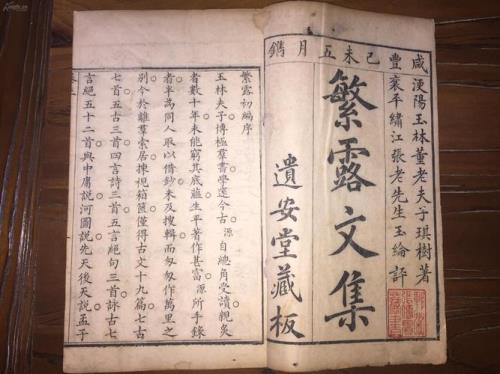 咸豐己未五月鐫
浭陽玉林董老夫子琪樹著
襄平繡江張老先生玉綸評
繁露文集
遺安堂藏板
繁露初編序
玉林夫子博極羣書學達今古源自總角受讀親炙
者數十年未能窮其底蘊生平著作甚富源所手錄
者半為同人取以借鈔未及搜輯而匆匆作萬里之
別今於離羣索居揀視箱篋僅得古文十九篇七古
七首五古三首四言詩三首五言絕句三首詠古七
言絕五十二首與中庸說河圖說先天後天說孟子